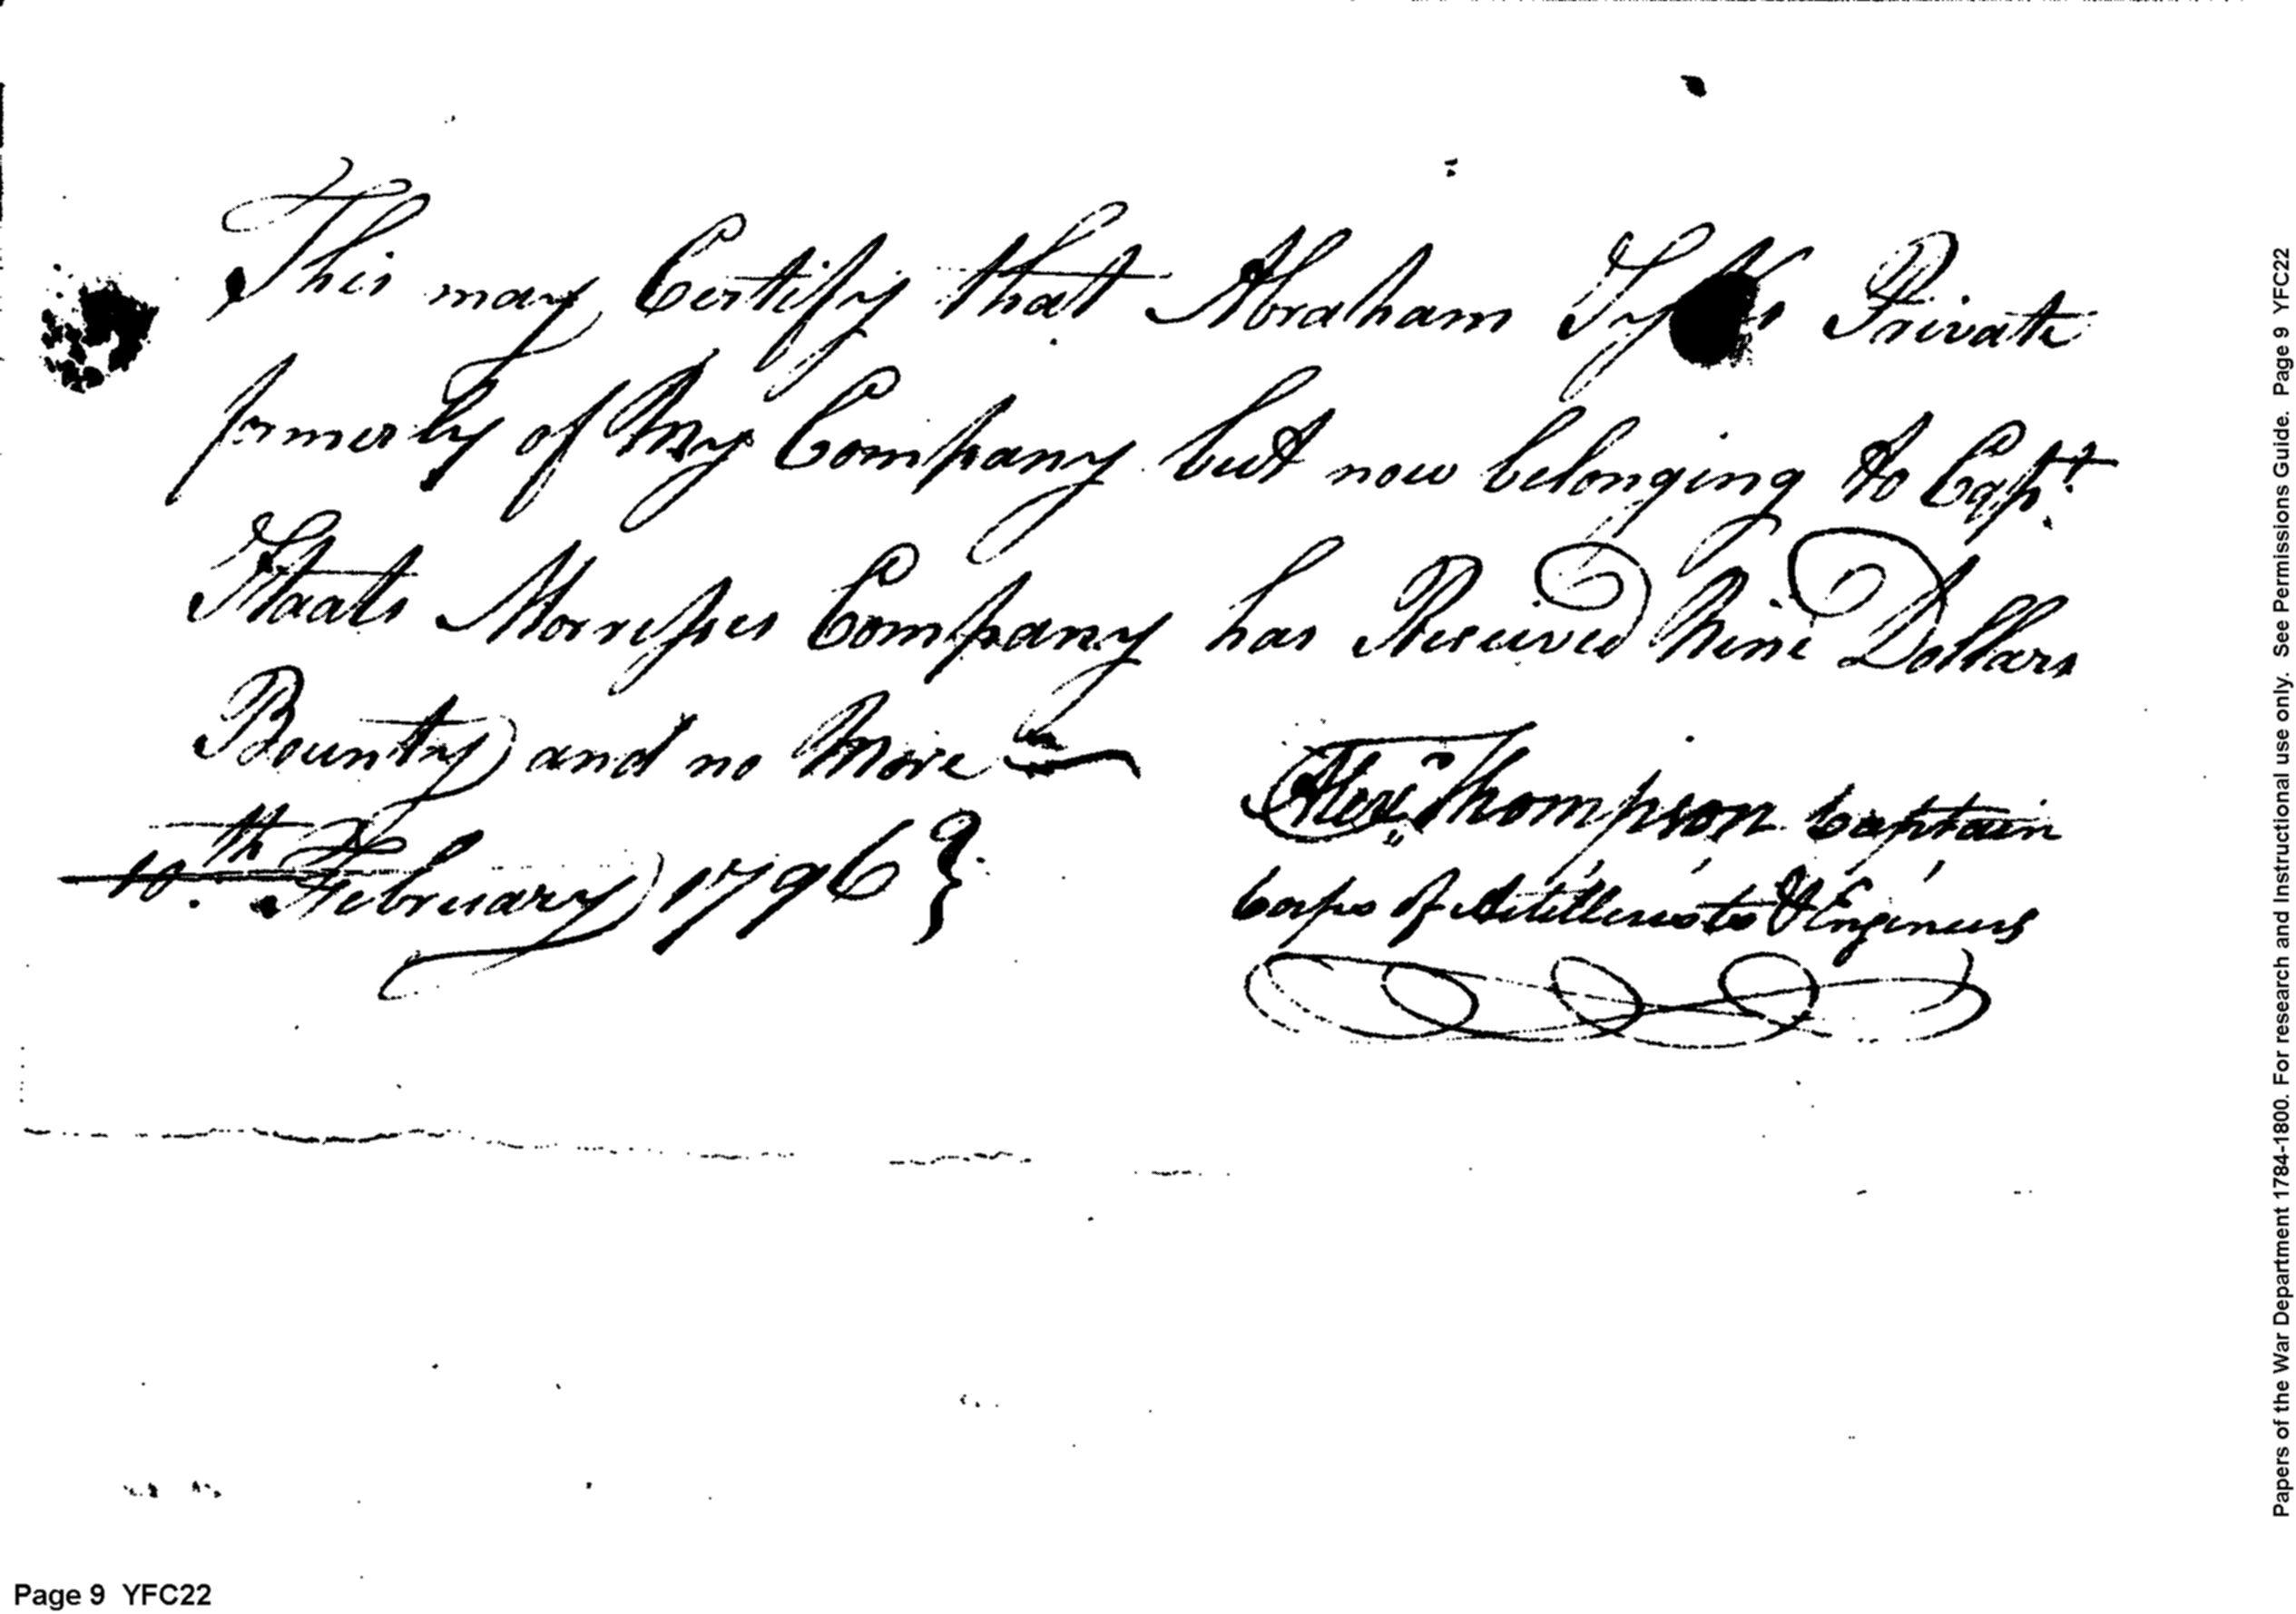 This may Certify that Abraham Private
formerly of My Company but now belonging to Capt.
Staats Morrisses Company has Received Nine Dollars
Bounty and no More
10.th February 1796 }
Alexr. Thompson Captain
Corps of Artillerists & Engineers
Papers of the War Department 1784-1800. For research and Instructional use only. See Permissions Guide. Page 9 YFC22
Page 9 YFC22